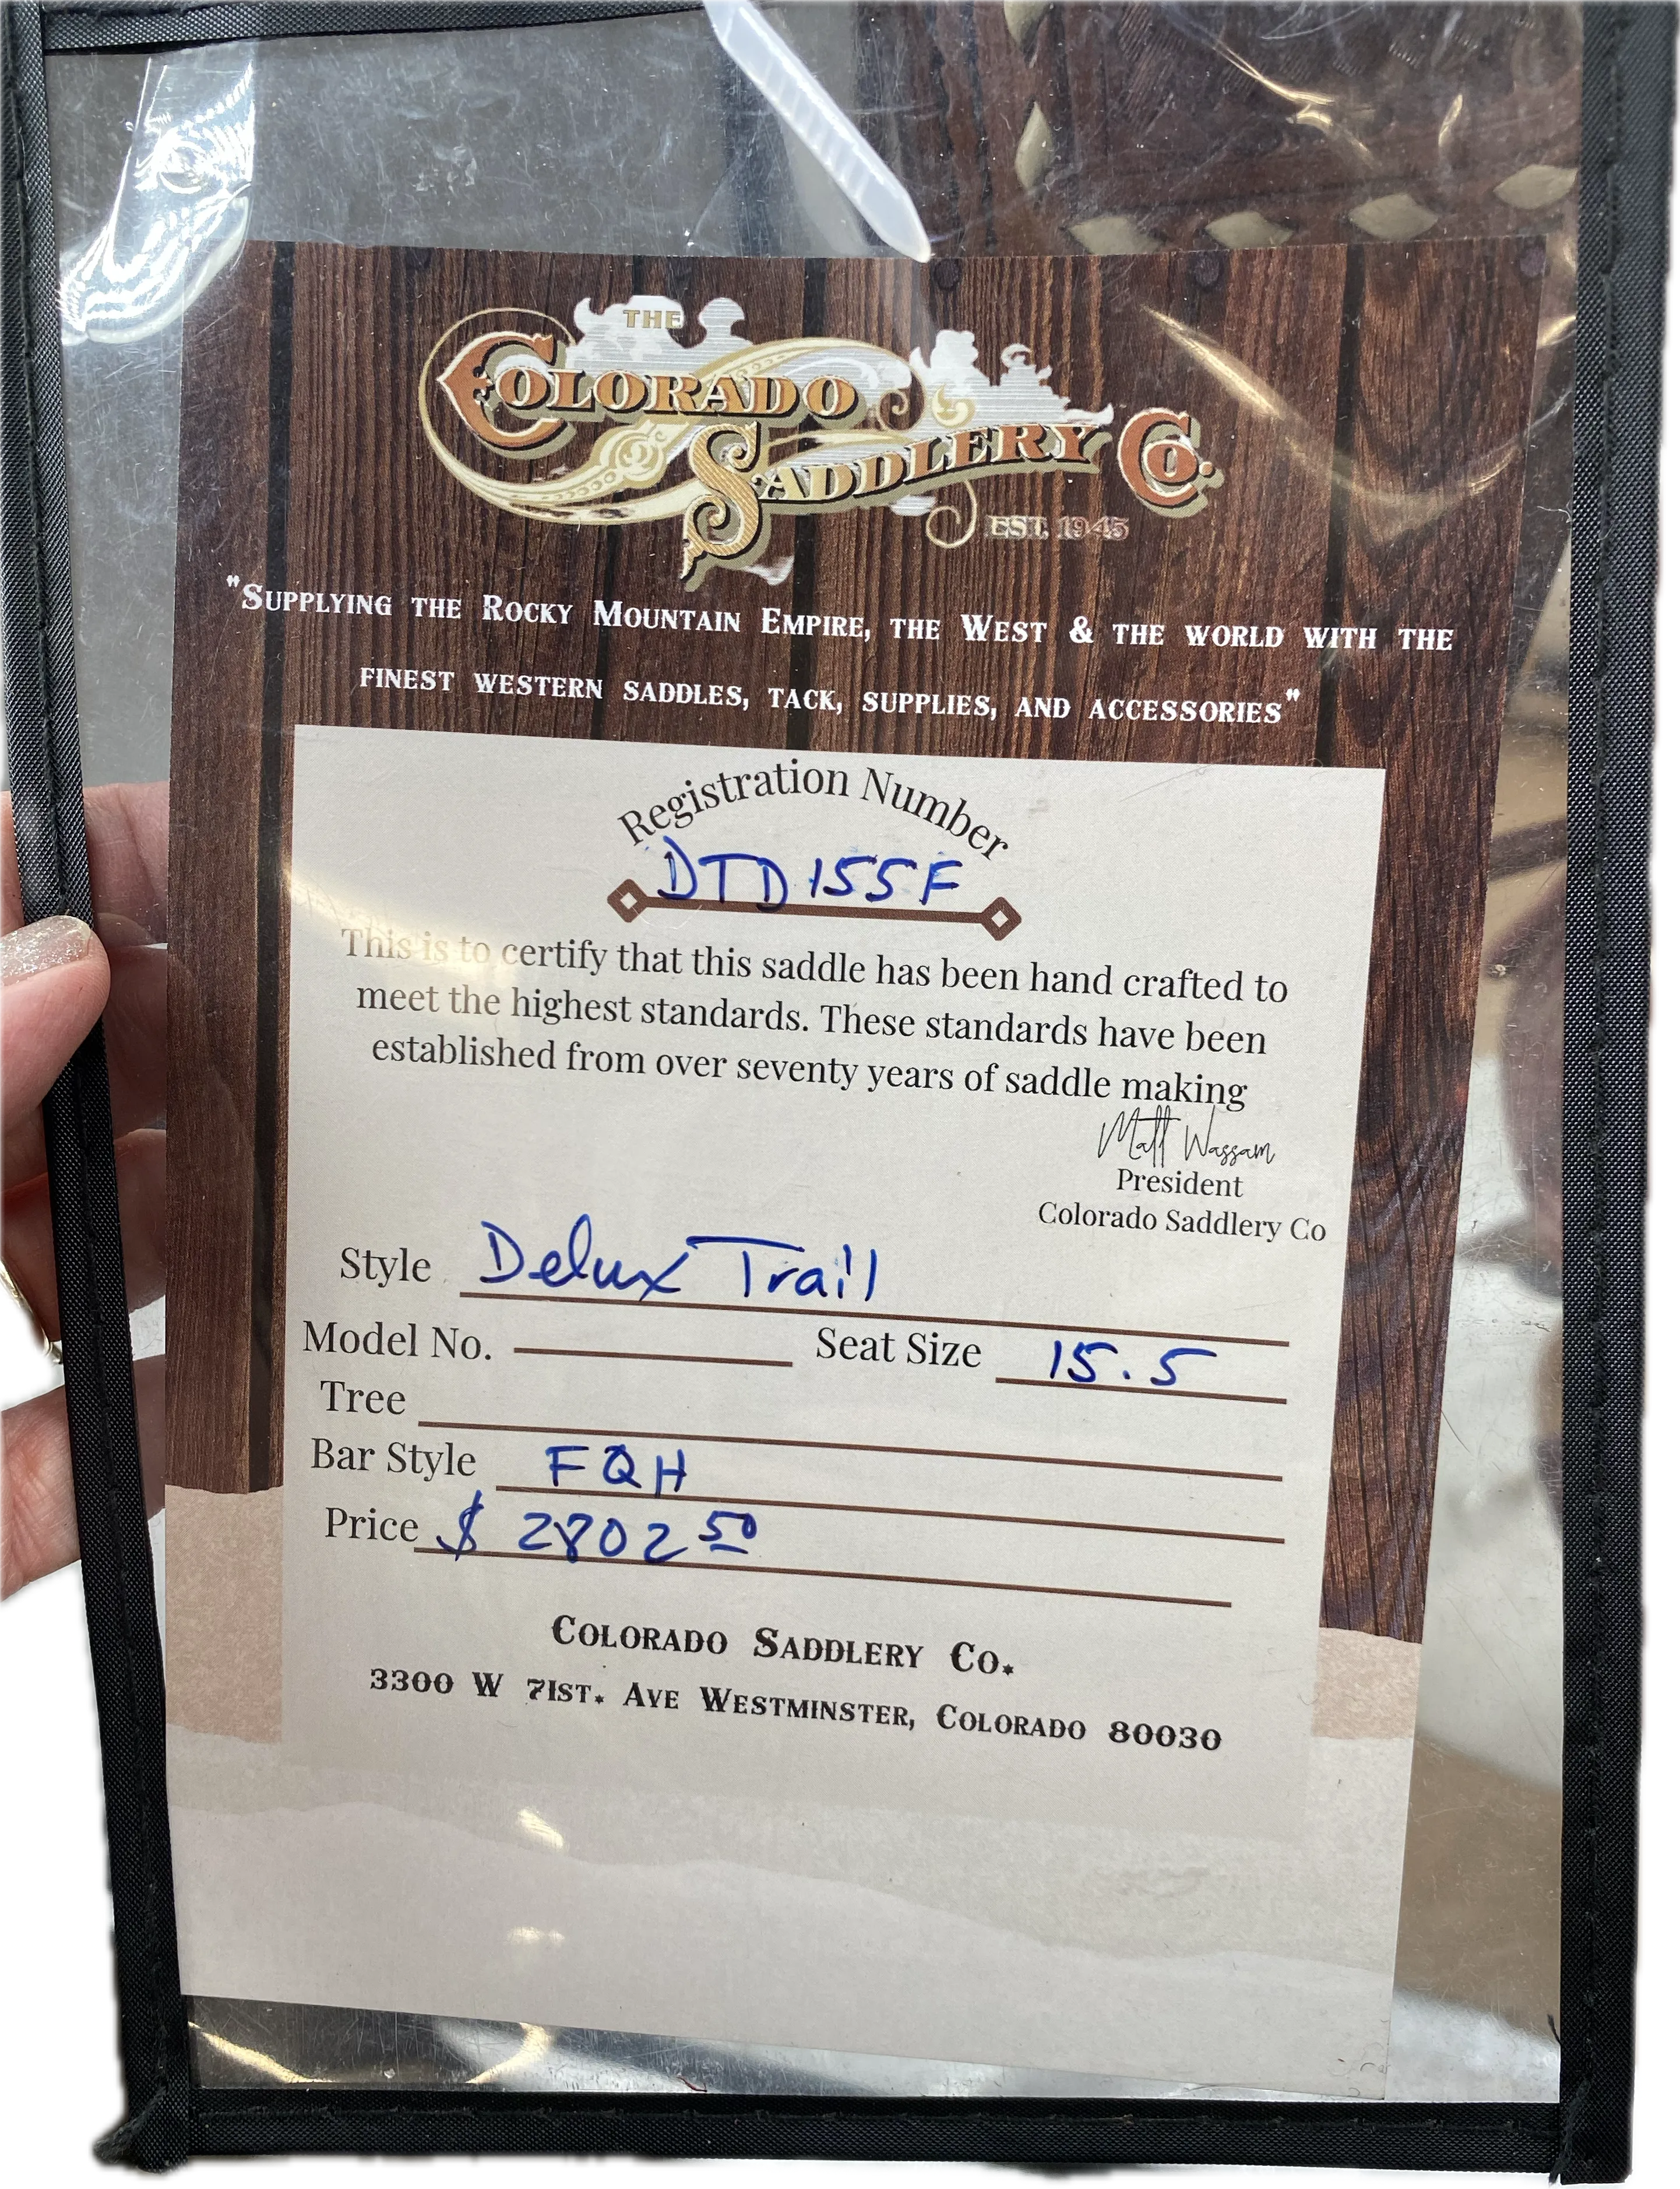 THE
COLORADO
SADDLERY CO.
EST. 1945
"SUPPLYING THE ROCKY MOUNTAIN EMPIRE, THE WEST & THE WORLD WITH THE
FINEST WESTERN SADDLES, TACK, SUPPLIES, AND ACCESSORIES"
Registration Number
DTD155F
This is to certify that this saddle has been hand crafted to
meet the highest standards. These standards have been
established from over seventy years of saddle making
Matt Wassam
President
Colorado Saddlery Co
Style Delux Trail
Model No. Seat Size 15.5
Tree
Bar Style FQH
Price $ 2802 50
COLORADO SADDLERY CO.
3300 W 71ST. AVE WESTMINSTER, COLORADO 80030